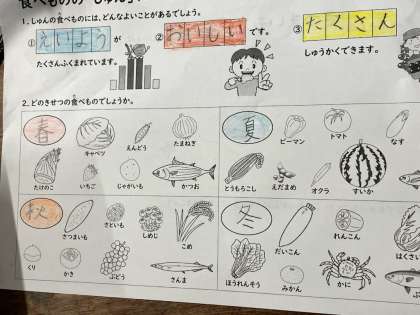 食べものの「しゅん」
1.しゅんの食べものには、どんなよいことがあるでしょう。
① えいよう が
たくさんふくまれています。
② おいしい です。
③ たくさん
しゅうかくできます。
2.どのきせつの食べものでしょうか。
春
キャベツ
えんどう
たまねぎ
たけのこ
いちご
じゃがいも
かつお
夏
ピーマン
トマト
なす
とうもろこし
えだまめ
オクラ
すいか
秋
さつまいも
さといも
しめじ
こめ
くり
かき
ぶどう
さんま
冬
だいこん
れんこん
はくさい
ほうれんそう
みかん
かに